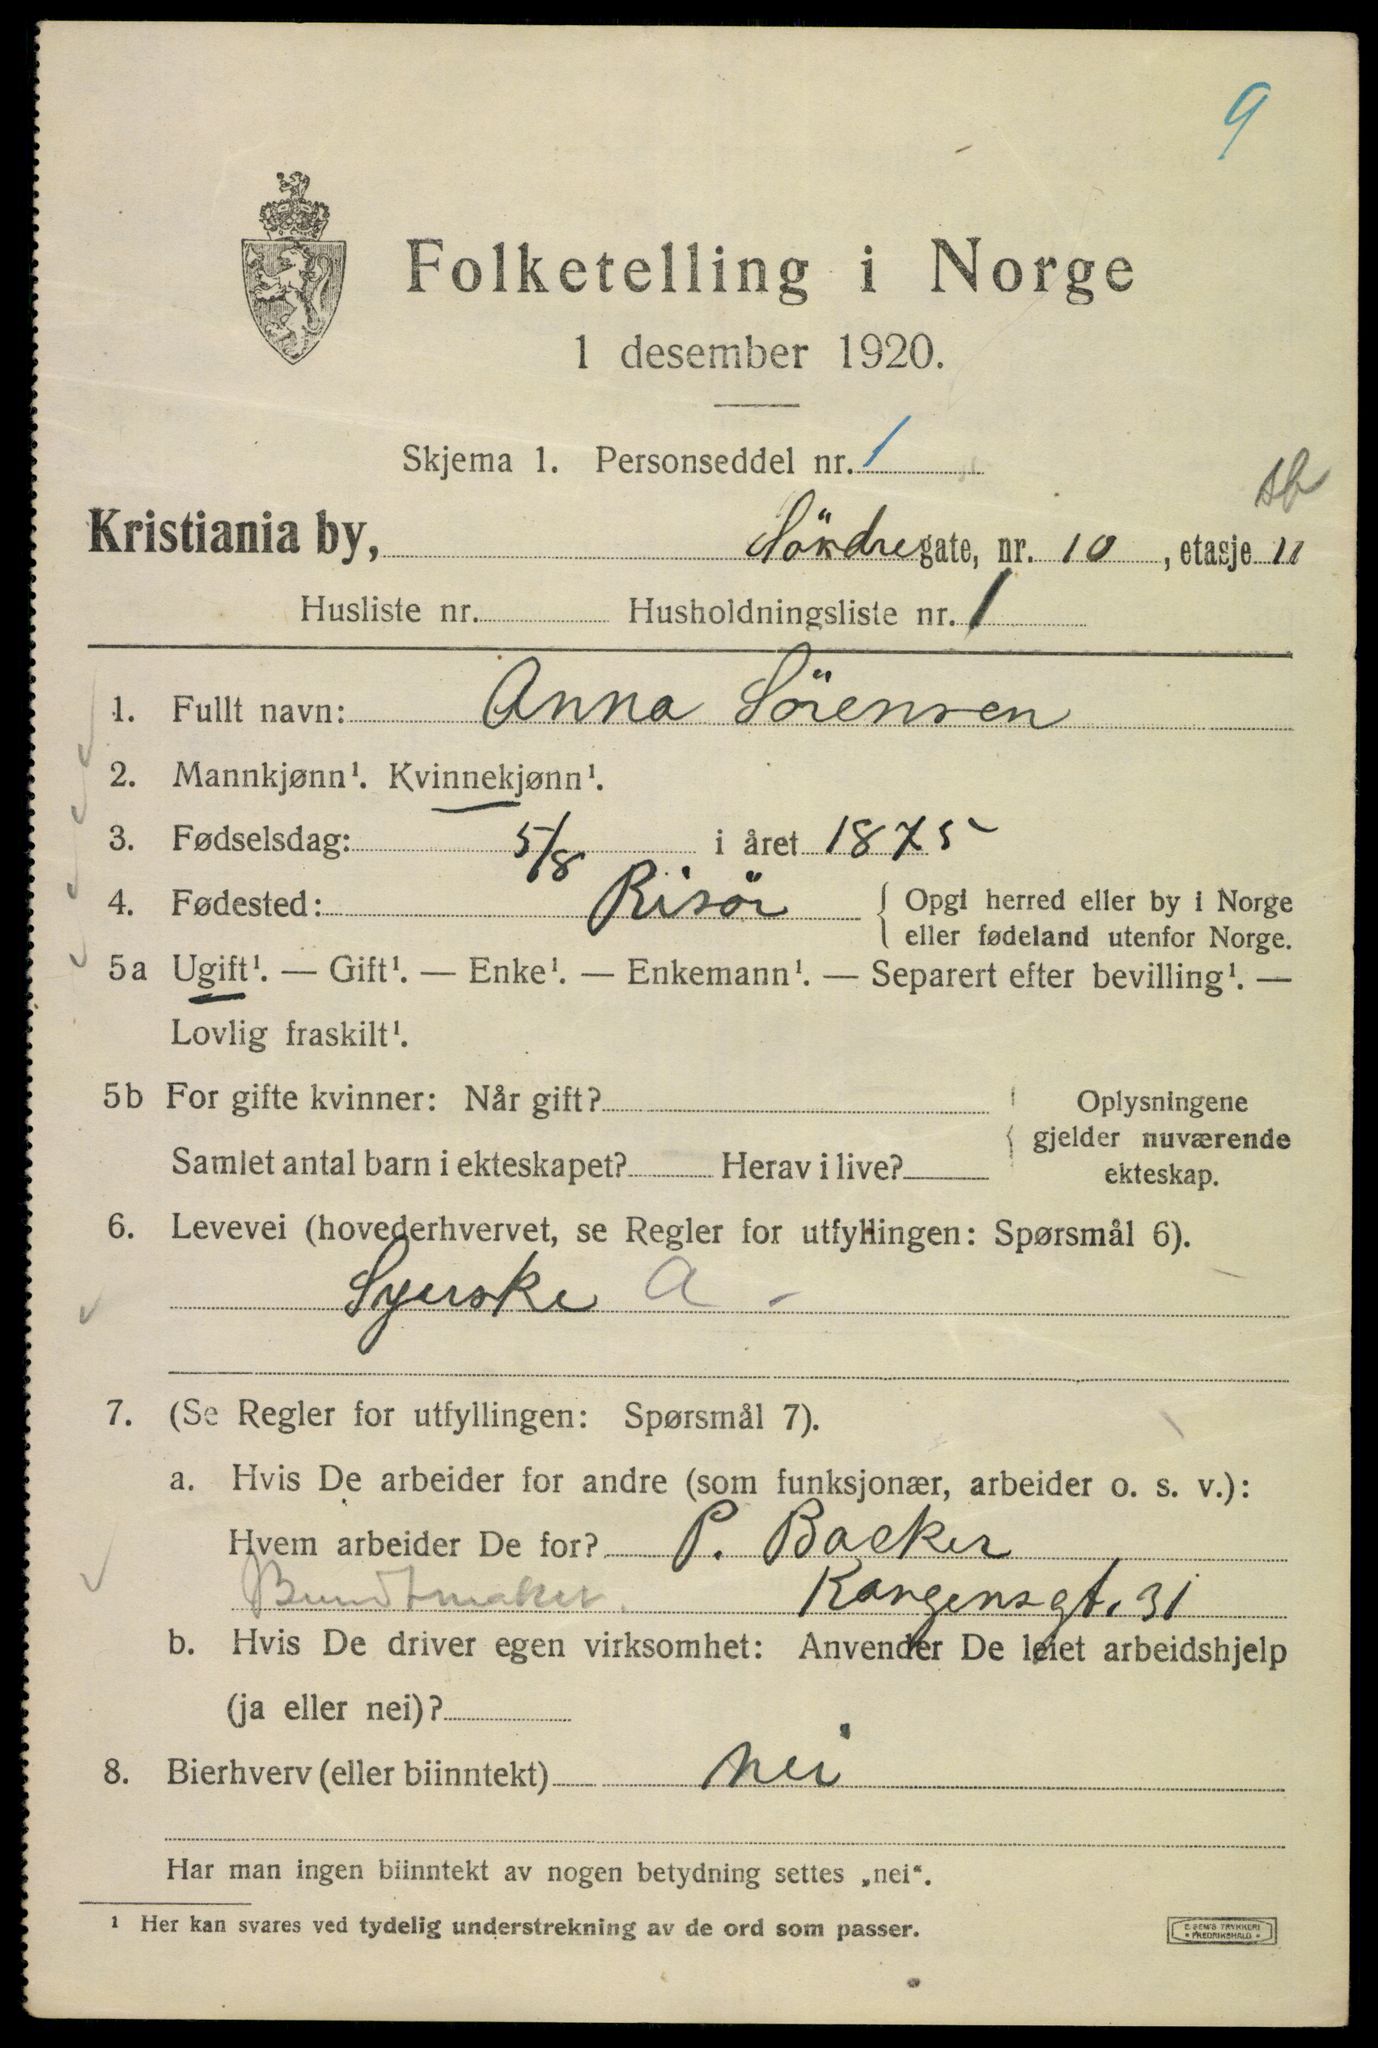 9
Folketelling i Norge
1 desember 1920.
Skjema 1. Personseddel nr. 1
Kristiania by, Söndregate, nr. 10, etasje 11
Husliste nr. Husholdningsliste nr. 1
1. Fullt navn: Anna Sörensen
2. Mannkjønn¹. Kvinnekjønn¹.
3. Fødselsdag: 5/8 i året 1875
4. Fødested: Risör { Opgi herred eller by i Norge
eller fødeland utenfor Norge.
5a Ugift¹. — Gift¹. — Enke¹. — Enkemann¹. — Separert efter bevilling¹. —
Lovlig fraskilt¹.
5b For gifte kvinner: Når gift? Oplysningene
gjelder nuværende
Samlet antal barn i ekteskapet? Herav i live? ekteskap.
6. Levevei (hovederhvervet, se Regler for utfyllingen: Spørsmål 6).
Syerske A -
7. (Se Regler for utfyllingen: Spørsmål 7).
a. Hvis De arbeider for andre (som funksjonær, arbeider o. s. v.):
Hvem arbeider De for? P. Backer
Bundtmaker. Kongensgt. 31
b. Hvis De driver egen virksomhet: Anvender De leiet arbeidshjelp
(ja eller nei)?
8. Bierhverv (eller biinntekt) nei
Har man ingen biinntekt av nogen betydning settes „nei“.
¹ Her kan svares ved tydelig understrekning av de ord som passer.
E. SEM'S TRYKKERI
FREDRIKSHALD